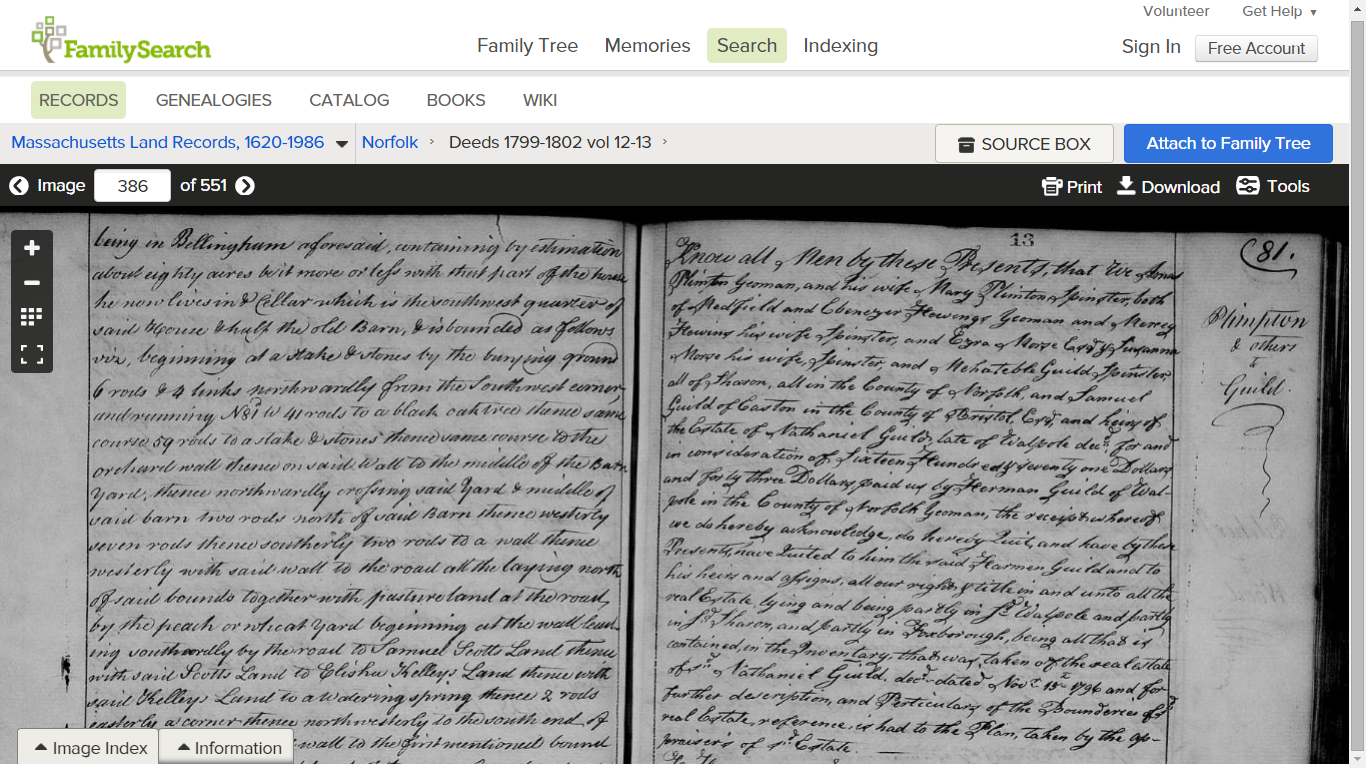 Volunteer Get Help
FamilySearch
Family Tree Memories Search Indexing
Sign In Free Account
RECORDS GENEALOGIES CATALOG BOOKS WIKI
Massachusetts Land Records, 1620-1986 Norfolk › Deeds 1799-1802 vol 12-13 ›
SOURCE BOX
Attach to Family Tree
Image 386 of 551
Print Download Tools
being in Bellingham aforesaid, containing by estimation
about eighty acres be it more or less with that part of the house
he now lives in & Cellar which is the southwest quarter of
said House & half the old Barn, & is bounded as follows
viz, beginning at a stake & stones by the burying ground
6 rods & 4 links northwardly from the Southwest corner,
and running N 81 W 41 rods to a black oak tree thence same
course 59 rods to a stake & stones thence same course to the
orchard wall thence on said Wall to the middle of the Barn
Yard, thence northwardly crossing said Yard & middle of
said barn two rods north of said Barn thence westerly
seven rods thence southerly two rods to a wall thence
westerly with said wall to the road all the laying north
of said bounds together with pasture land at the road,
by the peach or wheat Yard beginning at the wall lead-
ing southwardly by the road to Samuel Scotts Land thence
with said Scotts Land to Elisha Kelleys Land thence with
said Kelleys Land to a watering spring thence 2 rods
easterly a corner thence northwesterly to the south end of
wall to the first mentioned bound
13
81.
Know all Men by these Presents, that We Jonas
Plimton Yeoman, and his wife Mary Plimton Spinster, both
of Medfield and Ebenezer Hewings Yeoman and Mercy
Hewins his wife Spinster, and Ezra Morse Esqr & Susanna
Morse his wife, Spinster, and Mehetable Guild, Spinster,
all of Sharon, all in the County of Norfolk, and Samuel
Guild of Easton in the County of Bristol, Esqr, and heirs of
the Estate of Nathaniel Guild, late of Walpole decd. for and
in consideration of Sixteen Hundred & seventy one Dollars
and forty three Dollars, paid us by Herman Guild of Wal-
pole in the County of Norfolk Yeoman, the receipt whereof
we do hereby acknowledge, do hereby Quit, and have by these
Presents, have Quited to him the said Harmen Guild and to
his heirs and assigns, all our right & title in and unto all the
real Estate, lying and being partly in sd Walpole and partly
in sd Sharon, and partly in Foxborough, being all that is
contained, in the Inventary, that was taken of the real estate
of sd. Nathaniel Guild, decd. dated Novr. 1796 and for
further description, and Particulars of the Bounderies of sd
real Estate, reference, is had to the Plan, taken by the ap-
praisers of sd Estate.
Plimpton
& others
to
Guild.
Image Index Information